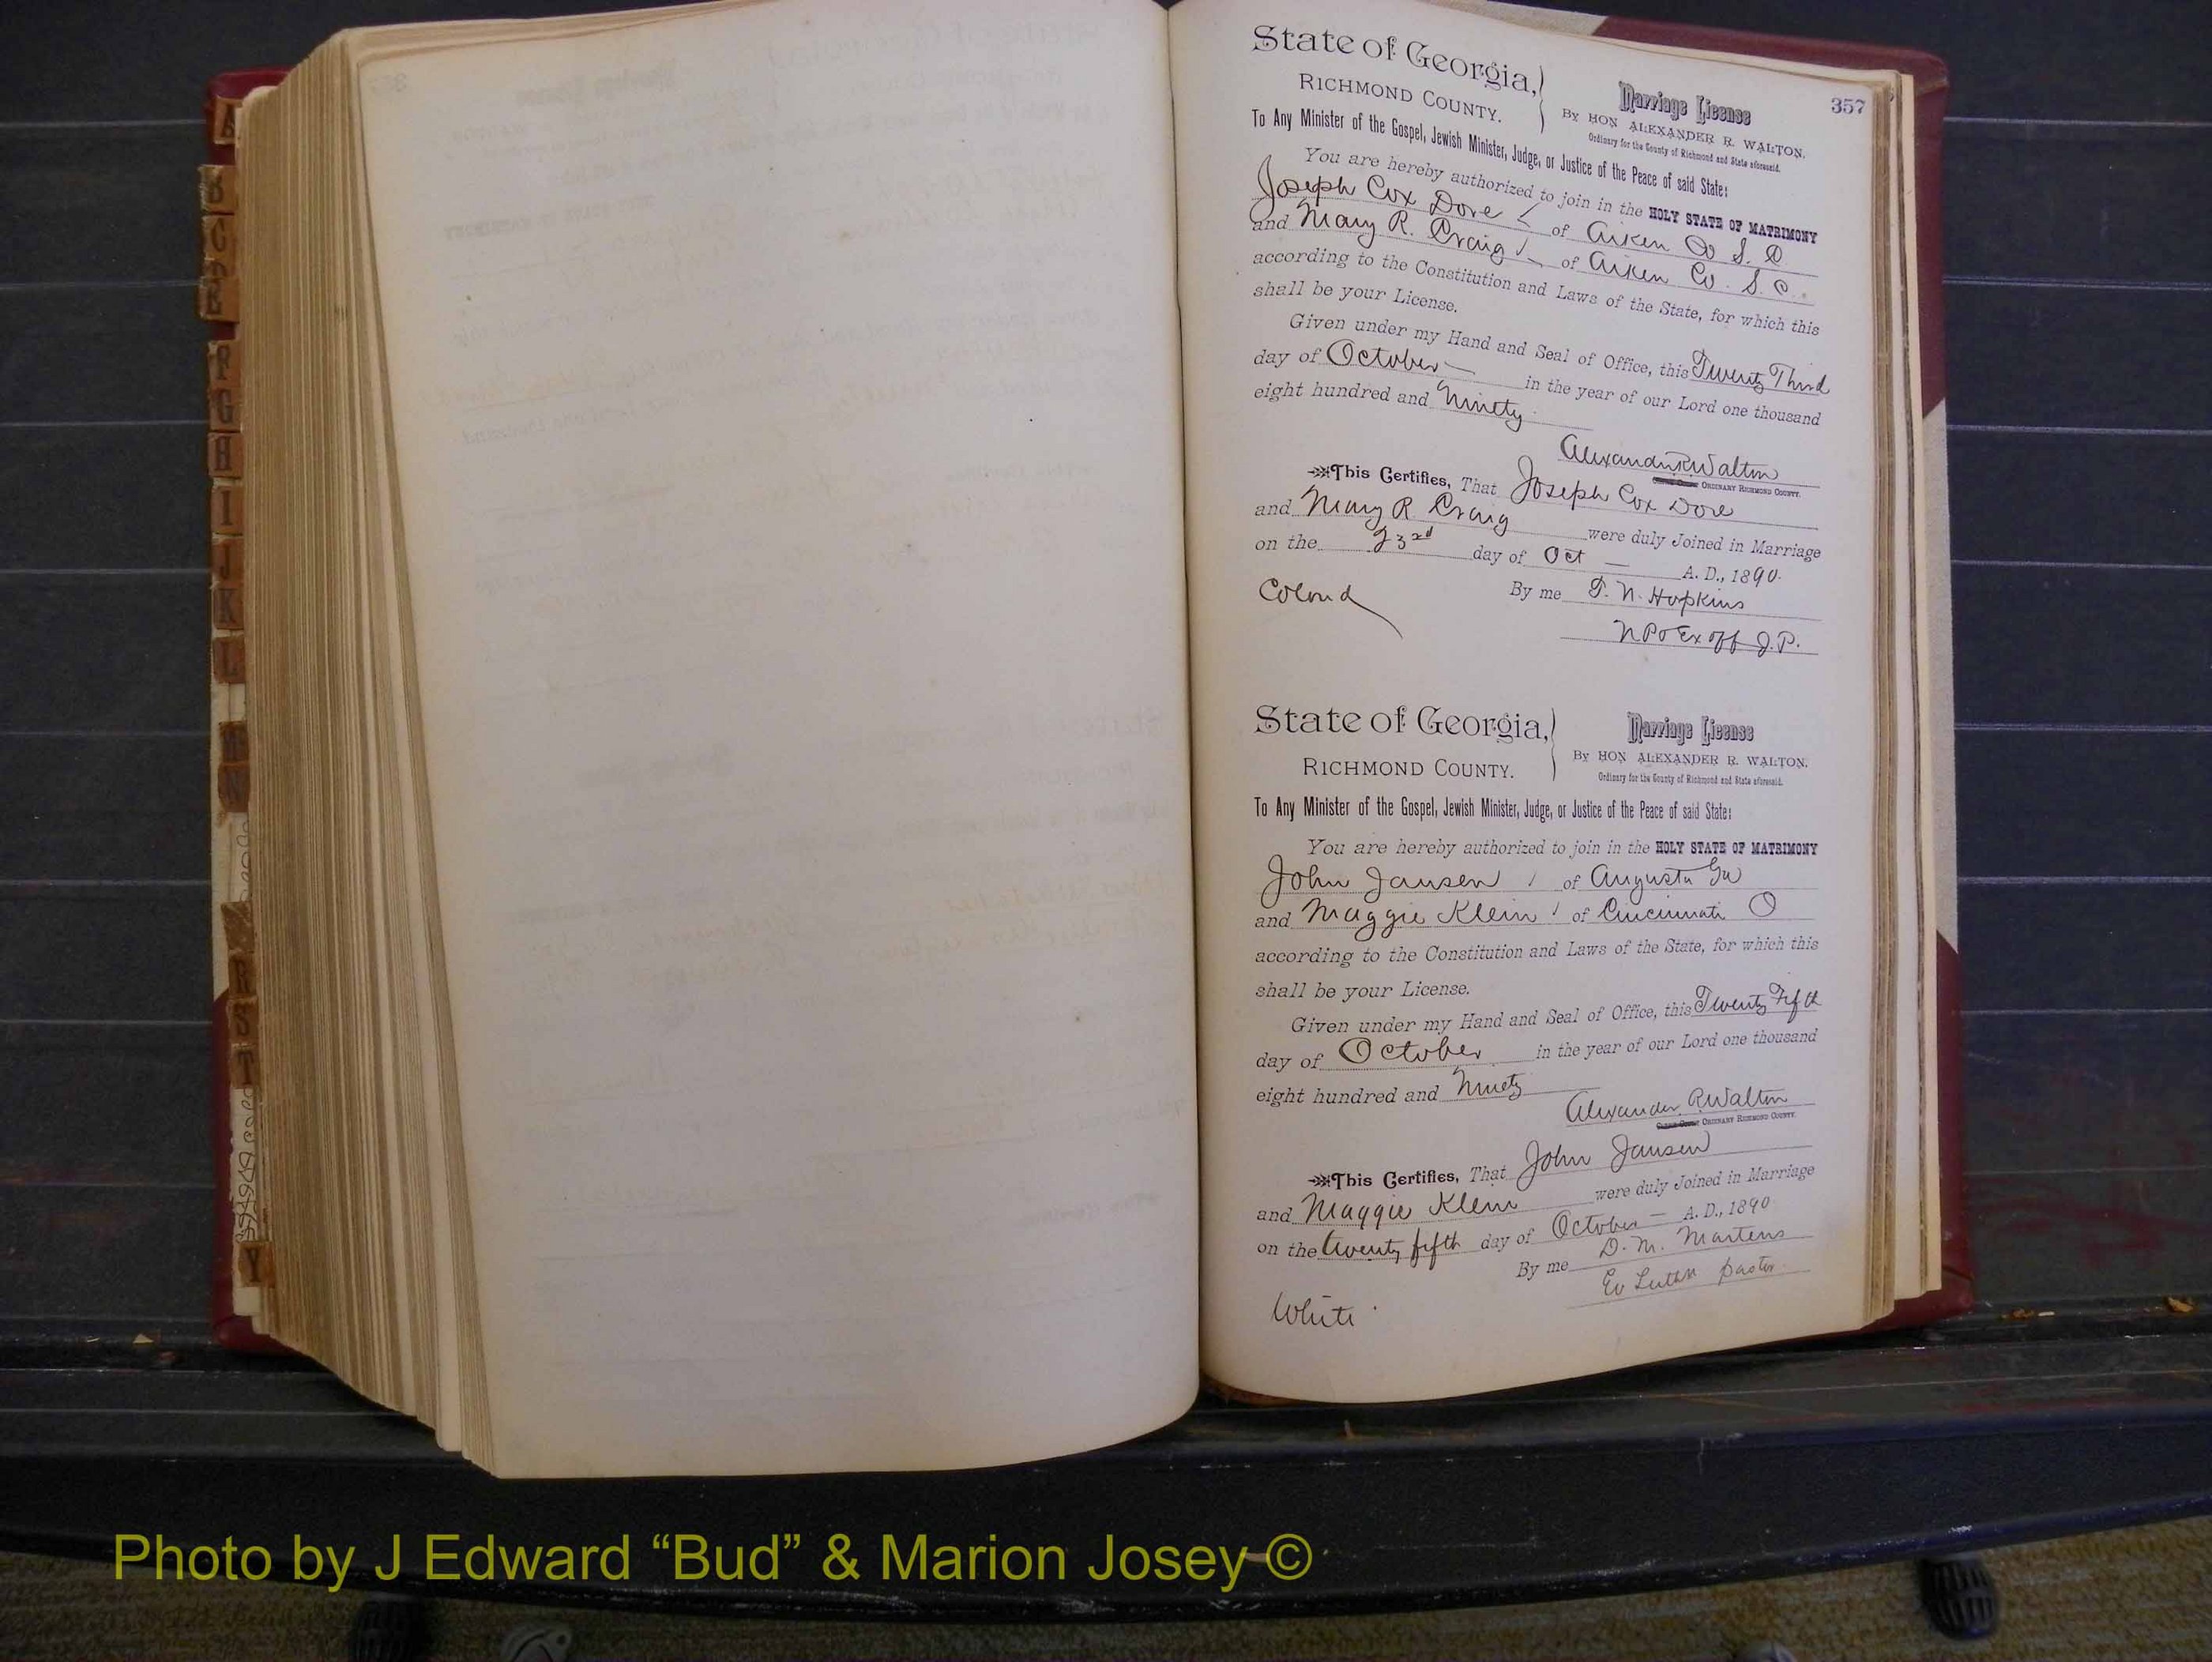 357
State of Georgia,
RICHMOND COUNTY.
Marriage License
By HON ALEXANDER R. WALTON.
Ordinary for the County of Richmond and State aforesaid.
To Any Minister of the Gospel, Jewish Minister, Judge, or Justice of the Peace of said State:
You are hereby authorized to join in the HOLY STATE OF MATRIMONY
Joseph Cox Dore of Aiken Co S. C
and Mary R. Craig of Aiken Co. S. C.
according to the Constitution and Laws of the State, for which this
shall be your License.
Given under my Hand and Seal of Office, this Twenty Third
day of October in the year of our Lord one thousand
eight hundred and Ninety
Alexander R Walton
ORDINARY RICHMOND COUNTY.
This Certifies, That Joseph Cox Dore
and Mary R Craig were duly Joined in Marriage
on the 23rd day of Oct A. D., 1890.
Colord
By me T. N. Hopkins
N P & Ex off J. P.
State of Georgia,
RICHMOND COUNTY.
Marriage License
By HON ALEXANDER R. WALTON.
Ordinary for the County of Richmond and State aforesaid.
To Any Minister of the Gospel, Jewish Minister, Judge, or Justice of the Peace of said State:
You are hereby authorized to join in the HOLY STATE OF MATRIMONY
John Jansen of Augusta Ga
and Maggie Klein of Cincinnati O
according to the Constitution and Laws of the State, for which this
shall be your License.
Given under my Hand and Seal of Office, this Twenty Fifth
day of October in the year of our Lord one thousand
eight hundred and Ninety
Alexander R Walton
ORDINARY RICHMOND COUNTY.
This Certifies, That John Jansen
and Maggie Klein were duly Joined in Marriage
on the twenty fifth day of October A. D., 1890
By me D. M. Martens
Ev Luthn pastor
White
A
B
C
D
E
F
G
H
I
J
K
L
M
N
R
S
T
Y
Photo by J Edward “Bud” & Marion Josey ©